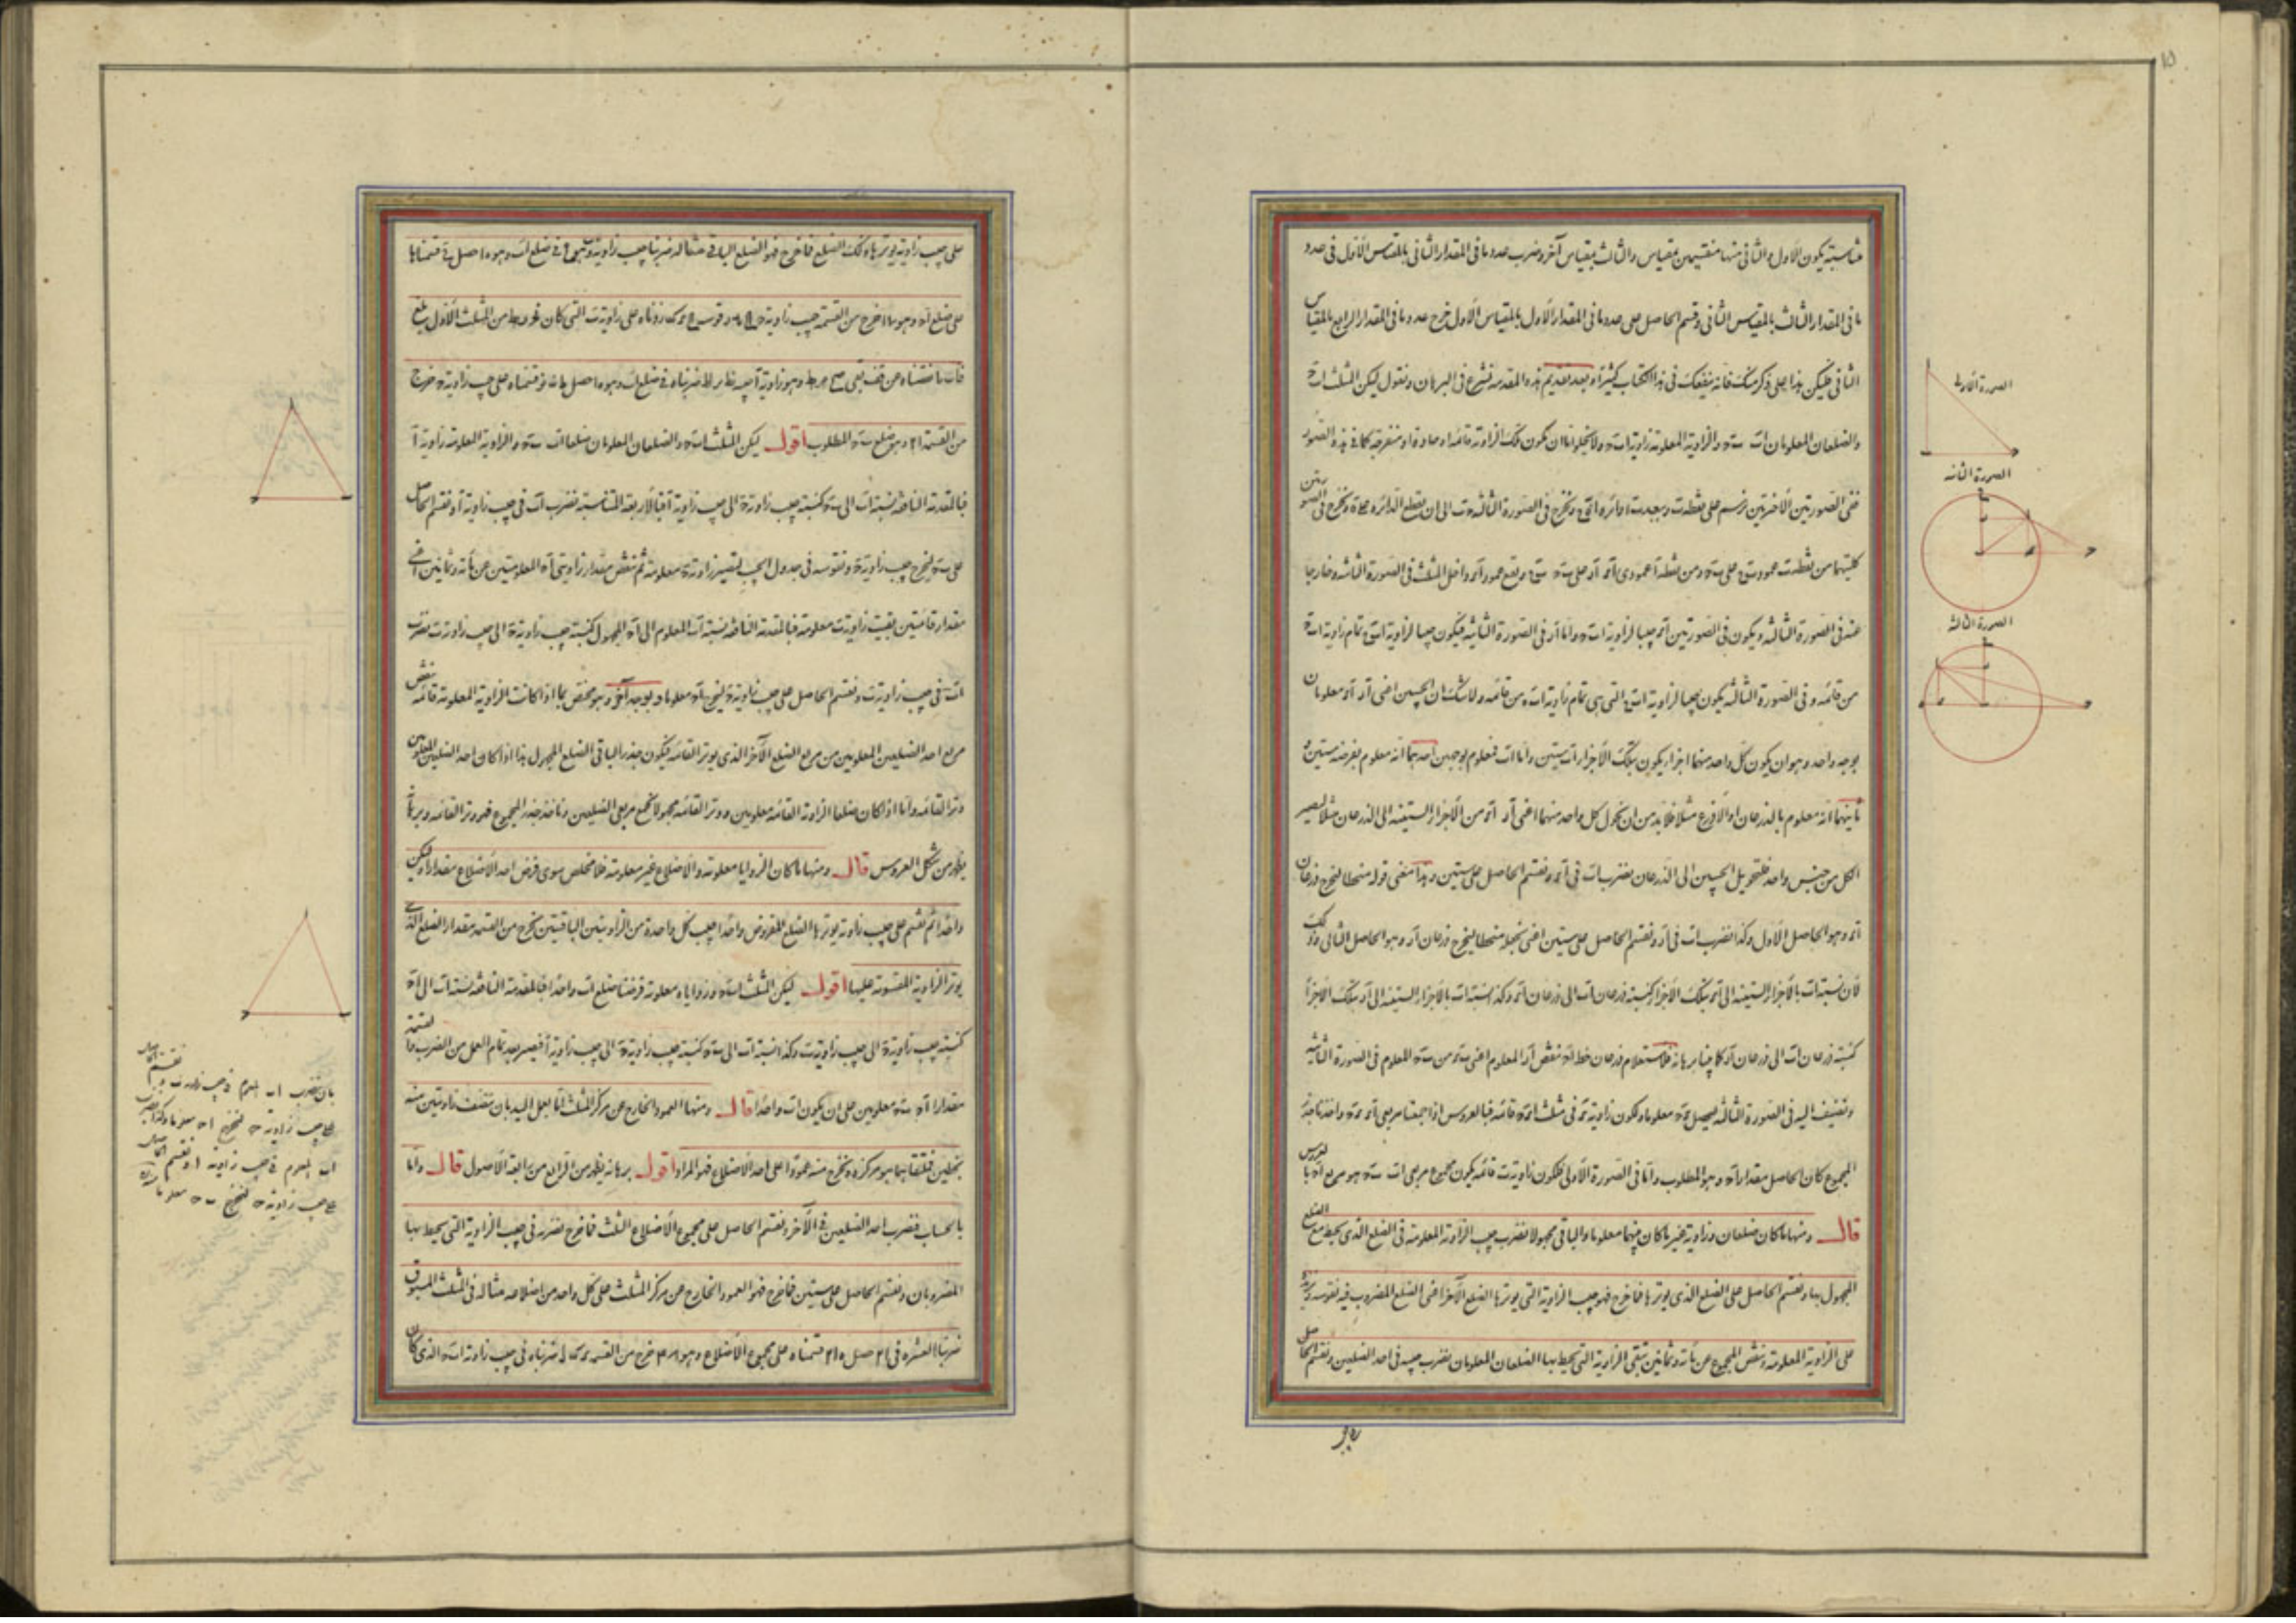 متناسبة يكون الاول والثانى منها منقسمين بمقياس والثالث بمقياس آخر وضرب عدد ما فى المقدار الثانى بالمقياس الاول فى عدد
ما فى المقدار الثالث بالمقياس الثانى وقسم الحاصل على عدد ما فى المقدار الاول بالمقياس الاول خرج عدد ما فى المقدار الرابع بالمقياس
الثانى فليكن هذا على ذكر منك فانه ينفعك فى هذا الكتاب كثيرا وبعد تقديم هذه المقدمة نشرع فى البرهان ونقول ليكن المثلث ا ب ح
والضلعان المعلومان ا ب ب ح والزاوية المعلومة زاوية ا ب ح ولا يخلو اما ان يكون تلك الزاوية قائمة او حادة او منفرجة كما فى هذه الصور
ففى الصورتين الاخرتين نرسم على نقطة ب وببعد ب ا دائرة ونخرج فى الصورة الثالثة الى ان يقطع الدائرة ونخرج فى الصورتين
كلتيهما من نقطة ب عمود على ب ح ومن نقطة ا عمودى على ب ح ويقع عمود داخل المثلث فى الصورة الثانية وخارجا
عنه فى الصورة الثالثة ويكون فى الصورتين جيبا لزاوية ا ب ح واما فى الصورة الثانية فيكون جيبا لزاوية تمام زاوية ا ب ح
من قائمة وفى الصورة الثالثة يكون جيبا لزاوية التى هى تمام زاوية ا ب ح من قائمة ولا شك ان الجيبين اعنى معلومان
بوجه واحد وهو ان يكون كل واحد منهما اجزاء يكون بتلك الاجزاء ا ب ستين واما ا ب فمعلوم بوجهين احدهما انه معلوم بفرضه ستين
ثانيهما انه معلوم بالذرعان او الاذرع مثلا فلا بد من ان نحول كل واحد منهما اعنى من الاجزاء الستينية الى الذرعان مثلا ليصير
الكل من جنس واحد فلتحويل الجيبين الى الذرعان نضرب ا ب فى ونقسم الحاصل على ستين وهذا معنى قوله منحطا ليخرج ذرعان
وهو الحاصل الاول وكذا نضرب ا ب فى ونقسم الحاصل على ستين اعنى نجعله منحطا ليخرج ذرعان وهو الحاصل الثانى وذلك
لان نسبة ا ب بالاجزاء الستينية الى بتلك الاجزاء كنسبة ذرعان ا ب الى ذرعان وكذا نسبة ا ب بالاجزاء الستينية الى بتلك الاجزاء
كنسبة ذرعان ا ب الى ذرعان برهانه فلاستعلام ذرعان خط ننقص المعلوم اعنى من ب ح المعلوم فى الصورة الثانية
ونضيف اليه فى الصورة الثالثة ليحصل معلوما ولكون زاوية فى مثلث قائمة فبالعروس اذا جمعنا مربعى واخذنا جذر
المجموع كان الحاصل مقدار ا ح وهو المطلوب واما فى الصورة الاولى فلكون زاوية ب قائمة يكون مجموع مربعى ا ب ب ح هو مربع ا ح بالعروس
قال ومنها ما كان ضلعان وزاوية غير ما كان بينهما معلوما والباقى مجهولا نضرب جيب الزاوية المعلومة فى الضلع الذى يحيط مع الضلع
المجهول بها ونقسم الحاصل على الضلع الذى يوترها فما خرج فهو جيب الزاوية التى يوترها الضلع الآخر اعنى الضلع المضروب فيه نقوسه ونزيده
على الزاوية المعلومة وننقص المجموع من مائة وثمانين تبقى الزاوية التى يحيط بها الضلعان المعلومان نضرب جيبه فى احد الضلعين ونقسم الحاصل
الصورة الاولى
الصورة الثانية
الصورة الثالثة
على جيب زاوية يوترها ذلك الضلع فما خرج فهو الضلع الباقى مثاله ضربنا جيب زاوية فى ضلع ا ب وهو حاصل قسمناها
على ضلع وهو خرج من القسمة جيب زاوية زدناه على زاوية ب التى كان من المثلث الاول بلغ
نقصناه من بقى وهو زاوية ا جيبه ضربناه فى ضلع ا ب حصل قسمناه على جيب زاوية ح خرج
من القسمة وهو ضلع ب ح المطلوب اقول ليكن المثلث ا ب ح والضلعان المعلومان ضلعا ا ب ب ح والزاوية المعلومة زاوية ا
فبالمقدمة النافعة نسبة ا ب الى ب ح كنسبة جيب زاوية ح الى جيب زاوية ا فبالاربعة المتناسبة نضرب ا ب فى جيب زاوية ا ونقسم الحاصل
على ب ح ليخرج جيب زاوية ح ونقوسه فى جدول الجيب لتصير زاوية ح معلومة ثم ننقص مقدار زاويتى ا ح المعلومتين من مائة وثمانين اعنى
مقدار قائمتين بقيت زاوية ب معلومة فبالمقدمة النافعة نسبة ا ب المعلوم الى ا ح المجهول كنسبة جيب زاوية ح الى جيب زاوية ب نضرب
ا ب فى جيب زاوية ب ونقسم الحاصل على جيب زاوية ح ليخرج ا ح معلوما وبوجه آخر وهو مختص بما اذا كانت الزاوية المعلومة قائمة ننقص
مربع احد الضلعين المعلومين من مربع الضلع الآخر الذى يوتر القائمة فيكون جذر الباقى الضلع المجهول هذا اذا كان احد الضلعين المعلومين
وتر القائمة واما اذا كان ضلعا الزاوية القائمة معلومين ووتر القائمة مجهولا نجمع مربعى الضلعين وناخذ جذر المجموع فهو وتر القائمة وبرهانه
يظهر من شكل العروس قال ومنها ما كان الزوايا معلومة والاضلاع غير معلومة فلا مخلص سوى فرض احد الاضلاع مقدارا وليكن
واحدا ثم نقسم على جيب زاوية يوترها الضلع المفروض واحدا جيب كل واحدة من الزاويتين الباقيتين يخرج من القسمة مقدار الضلع الذى
يوتر الزاوية المقسومة عليها اقول ليكن المثلث ا ب ح وزواياه معلومة فرضنا ضلع ا ب واحدا فبالمقدمة النافعة نسبة ا ب الى ا ح
كنسبة جيب زاوية ح الى جيب زاوية ب وكذا نسبة ا ب الى ب ح كنسبة جيب زاوية ح الى جيب زاوية ا فيصير بعد تمام العمل من الضرب والقسمة
مقدار ا ح ب ح معلومين على ان يكون ا ب واحدا قال ومنها العمود الخارج عن مركز المثلث اما بعمل اليد بان ننصف زاويتين منه
بخطين فملتقاهما هو مركزه ونخرج منه عمودا على احد الاضلاع فهو المراد اقول برهانه يظهر من الرابع من رابعة الاصول قال واما
بالحساب فنضرب احد الضلعين فى الآخر ونقسم الحاصل على مجموع الاضلاع الثلث فما خرج نضربه فى جيب الزاوية التى يحيط بها
المضروبان ونقسم الحاصل على ستين فما خرج فهو العمود الخارج عن مركز المثلث على كل واحد من اضلاعه مثاله فى المثلث المسبوق
ضربنا العشرة فى ٢١ حصل ٢١٠ قسمناه على مجموع الاضلاع وهو خرج من القسمة ضربناه فى جيب زاوية ا ب ح الذى كان
بان نضرب ا ب المعلوم فى جيب زاوية ب ونقسم الحاصل
على جيب زاوية ح ليخرج ا ح معلوما وكذا نضرب
ا ب المعلوم فى جيب زاوية ا ونقسم الحاصل
على جيب زاوية ح ليخرج ب ح معلوما